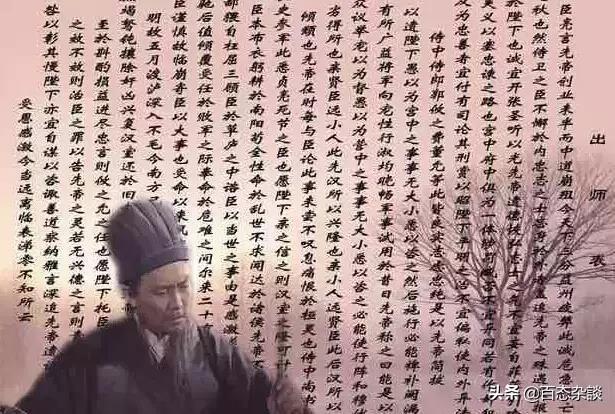 出师表
臣亮言先帝创业未半而中道崩殂今天下三分益州疲弊此诚危急
秋也然侍卫之臣不懈於内忠志之士忘身於外者盖追先帝之殊遇
於陛下也诚宜开张圣听以光先帝遗德恢弘志士之气不宜妄自菲
失义以塞忠谏之路也宫中府中俱为一体陟罚臧否不宜异同若有作
及为忠善者宜付有司论其刑赏以昭陛下平明之治不宜偏私使内外异法
侍中侍郎郭攸之费董允等此皆良实志虑忠纯是以先帝简拔
以遗陛下愚以为宫中之事事无大小悉以咨之然后施行必能裨补阙漏
有所广益将军向宠性行淑均晓畅军事试用於昔日先帝称之曰能是以
众议举宠以为督愚以为营中之事事无大小悉以咨之必能使行阵和穆
劣得所也亲贤臣远小人此先汉所以兴隆也亲小人远贤臣此后汉所以
倾颓也先帝在时每与臣论此事未尝不叹息痛恨於桓灵也侍中尚书
长史参军此悉贞亮死节之臣也愿陛下亲之信之则汉室之隆可计
臣本布衣躬耕於南阳苟全性命於乱世不求闻达於诸侯先帝不
鄙猥自枉屈三顾臣於草庐之中谘臣以当世之事由是感激
驰后值倾覆受任於败军之际奉命於危难之间尔来二十
臣谨慎故临崩寄臣以大事也受命以来夙
明故五月渡泸深入不毛今南方已
竭驽钝攘除奸凶兴复汉室还於旧
至於斟酌损益进尽忠言则攸之允之任也愿陛下托臣
之效不效则治臣之罪以告先帝之灵若无兴德之言则
咎以彰其慢陛下亦宜自谋以咨诹善道察纳雅言深追先帝遗
受恩感激今当远离临表涕零不知所云
头条 @百态杂谈